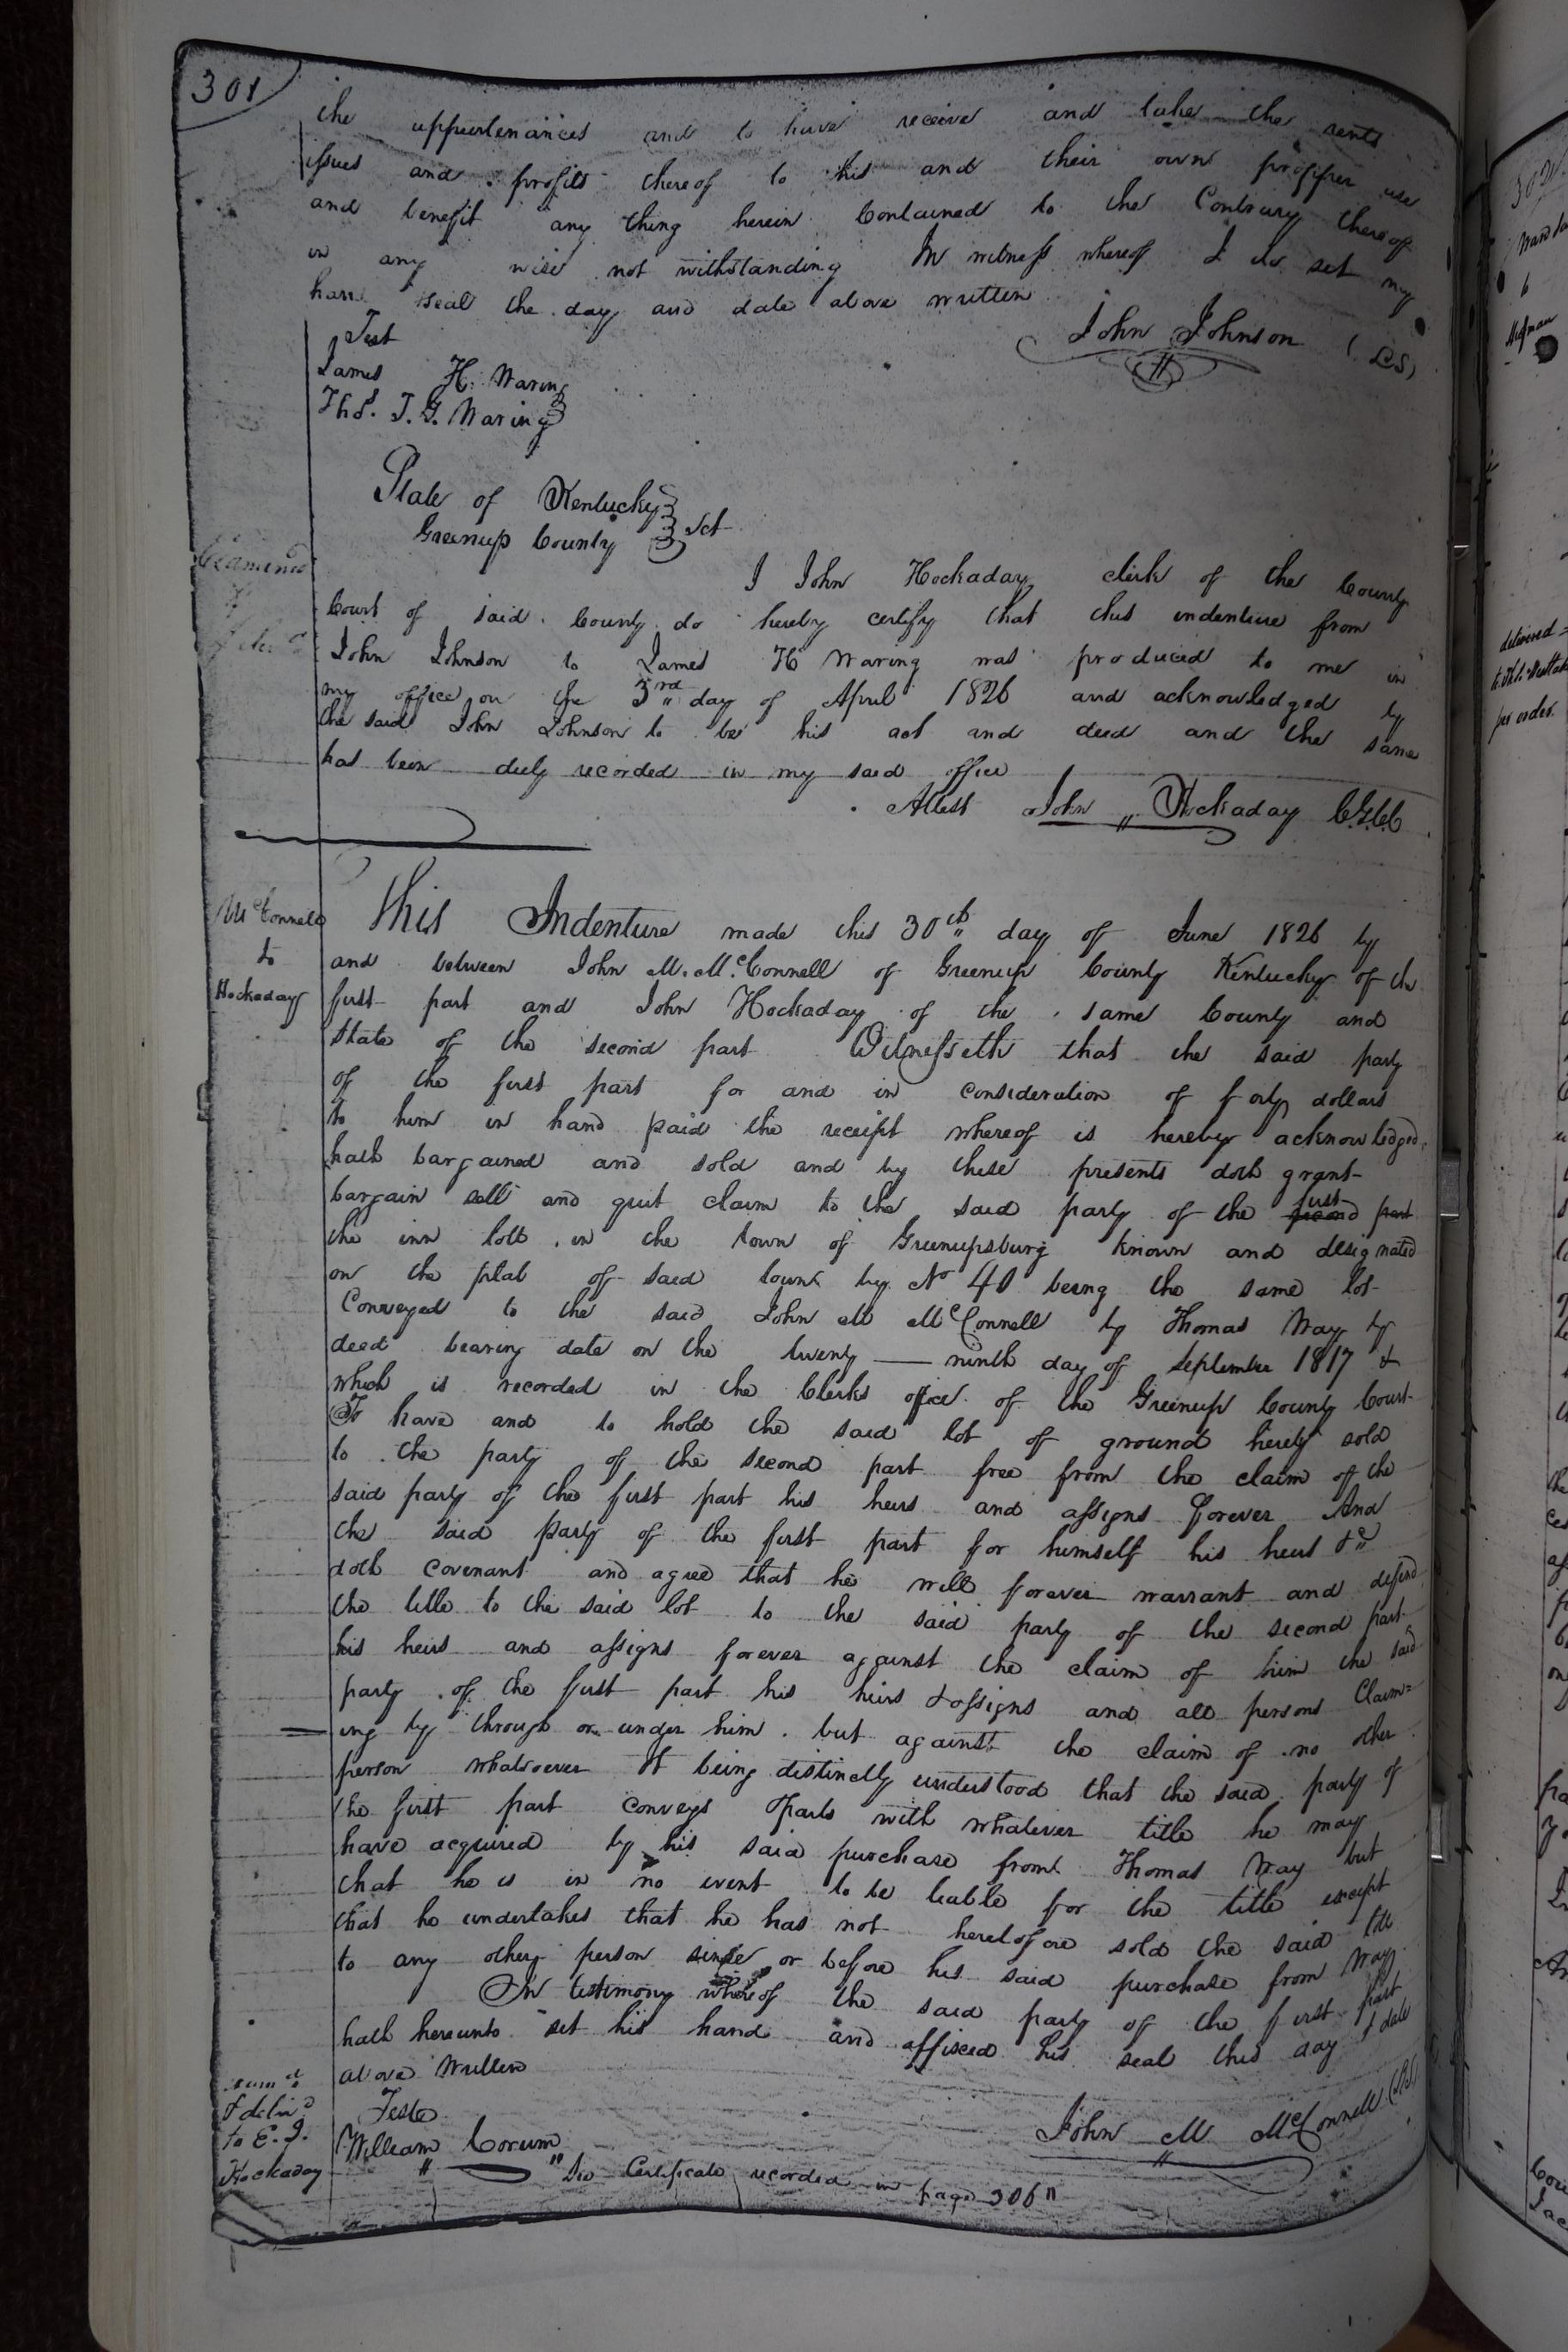 301
the appurtenances and to have receive and take the rents
issues and profits thereof to his and their own propper use
and benefit any thing herein Contained to the Contrary thereof
in any wise not withstanding In witness whereof I do set my
hand seal the day and date above written
John Johnson (LS)
Test
James H. Waring
Thos. T. G. Waring
State of Kentucky
Greenup County Sct
Examined
I John Hockaday clerk of the County
Court of said County do hereby certify that this indenture from
John Johnson to James H Waring was produced to me in
my office on the 3rd day of April 1826 and acknowledged by
the said John Johnson to be his act and deed and the same
has been duly recorded in my said office
Attest John Hockaday C.G.C.C
McConnell
to
Hockaday
This Indenture made this 30th day of June 1826 by
and between John M. McConnell of Greenup County Kentucky of the
first part and John Hockaday of the same County and
State of the second part Witnesseth that the said party
of the first part for and in consideration of forty dollars
to him in hand paid the receipt whereof is hereby acknowledged
hath bargained and sold and by these presents doth grant
bargain sell and quit claim to the said party of the first second part
the inn lott in the town of Greenupsburg known and designated
on the plat off said town by No 40 being the same lot
Conveyed to the said John M McConnell by Thomas Way by
deed bearing date on the twenty — ninth day of September 1817 &
which is recorded in the Clerks office of the Greenup County Court
To have and to hold the said lot of ground hereby sold
to the party of the second part free from the claim of the
said party of the first part his heirs and assigns forever And
the said party of the first part for himself his heirs &c
doth covenant and agree that he will forever warrant and defend
the title to the said lot to the said party of the second part
his heirs and assigns forever against the claim of him the said
party of the first part his heirs & assigns and all persons Claim=
ing by through or under him. but against the claim of no other
person whatsoever It being distinctly understood that the said party of
the first part conveys & parts with whatever title he may
have acquired by his said purchase from Thomas Way but
that he is in no event to be liable for the title except
that he undertakes that he has not heretofore sold the said title
to any other person since or before his said purchase from Way
In testimony whereof the said party of the first part
hath hereunto set his hand and affixed his seal this day & date
above Written
Teste
William Corum
John M McConnell (LS)
& delivd
to E. J.
Hockaday
See Certificate recorded in page 306
302
delivered
per order.